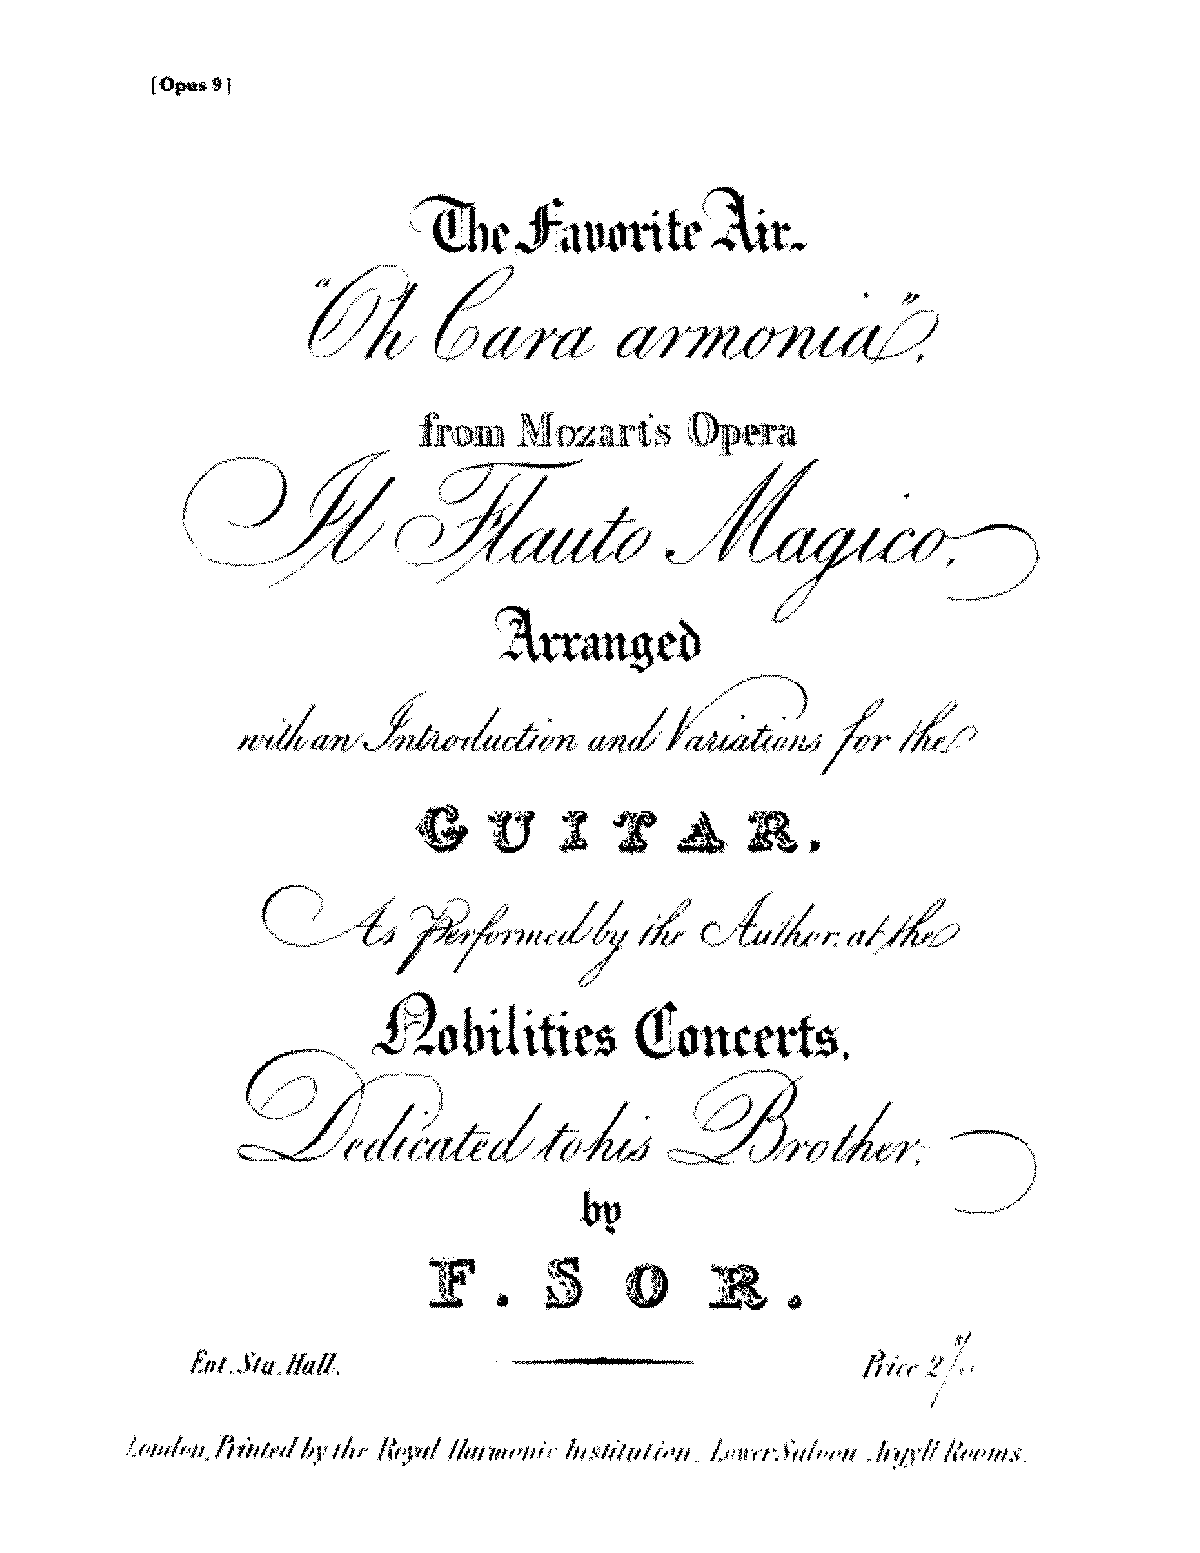 [Opus 9]
The Favorite Air.
"Oh Cara armonia".
from Mozart's Opera
Il Flauto Magico.
Arranged
with an Introduction and Variations for the
GUITAR.
As Performed by the Author, at the
Nobilities Concerts.
Dedicated to his Brother,
by
F. SOR.
Ent. Sta. Hall.
Price 2/
London, Printed by the Royal Harmonic Institution, Lower Saloon Argyll Rooms.